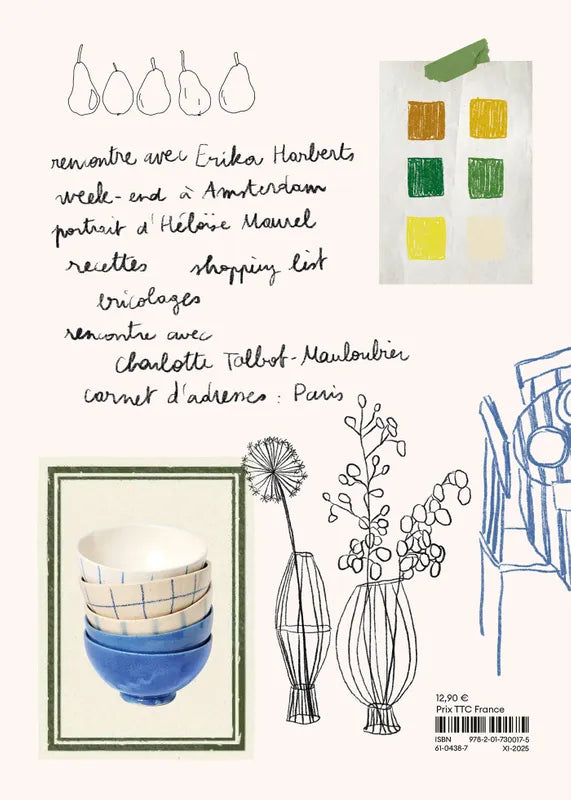 rencontre avec Erika Harberts
week-end à Amsterdam
portrait d'Héloïse Maurel
recettes shopping list
bricolages
rencontre avec
Charlotte Talbot-Mauloubier
carnet d'adresses : Paris
12,90 €
Prix TTC France
ISBN 978-2-01-730017-5
61-0438-7 XI-2025